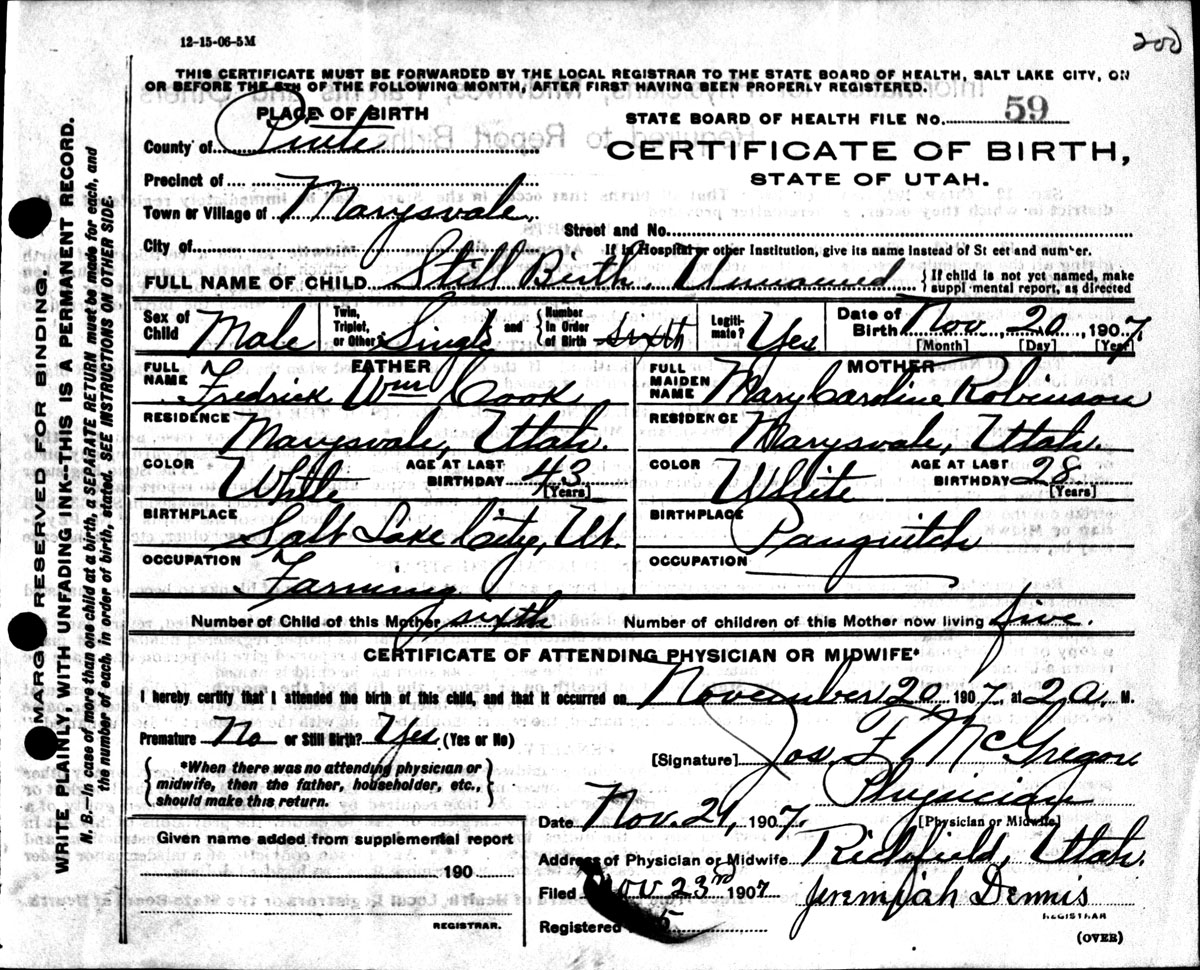 12-15-06-5M
200
THIS CERTIFICATE MUST BE FORWARDED BY THE LOCAL REGISTRAR TO THE STATE BOARD OF HEALTH, SALT LAKE CITY, ON
OR BEFORE THE 5TH OF THE FOLLOWING MONTH, AFTER FIRST HAVING BEEN PROPERLY REGISTERED.
PLACE OF BIRTH
STATE BOARD OF HEALTH FILE NO. 59
County of Piute
CERTIFICATE OF BIRTH,
STATE OF UTAH.
Precinct of
Town or Village of Marysvale
Street and No.
City of
If in Hospital or other Institution, give its name instead of St eet and number.
FULL NAME OF CHILD Still Birth. Unnamed { If child is not yet named, make
suppl mental report, as directed
Sex of Child Male
Twin, Triplet, or Other Single and { Number in Order of Birth sixth
Legiti- mate? Yes
Date of Birth Nov 20 1907
[Month] [Day] [Year]
FATHER
FULL NAME Fredrick Wm Cook
MOTHER
FULL MAIDEN NAME Mary Caroline Robinson
RESIDENCE Marysvale, Utah.
RESIDENCE Marysvale, Utah.
COLOR White AGE AT LAST BIRTHDAY 43 [Years]
COLOR White AGE AT LAST BIRTHDAY 28 [Years]
BIRTHPLACE Salt Lake City, Ut.
BIRTHPLACE Panguitch
OCCUPATION Farming
OCCUPATION
Number of Child of this Mother sixth
Number of children of this Mother now living five.
CERTIFICATE OF ATTENDING PHYSICIAN OR MIDWIFE*
I hereby certify that I attended the birth of this child, and that it occurred on November 20 1907, at 2 a. M.
Premature No or Still Birth? Yes (Yes or No)
[Signature] Jos. F. McGregor
{ *When there was no attending physician or
midwife, then the father, householder, etc.,
should make this return. }
Physician
[Physician or Midwife]
Date Nov. 21, 1907.
Given name added from supplemental report
190
REGISTRAR.
Address of Physician or Midwife Richfield, Utah.
Filed Nov 23rd 1907 Jeremiah Dennis
REGISTRAR
Registered 5
(OVER)
MARG RESERVED FOR BINDING.
WRITE PLAINLY, WITH UNFADING INK--THIS IS A PERMANENT RECORD.
N. B.--In case of more than one child at a birth, a SEPARATE RETURN must be made for each, and
the number of each, in order of birth, stated. SEE INSTRUCTIONS ON OTHER SIDE.